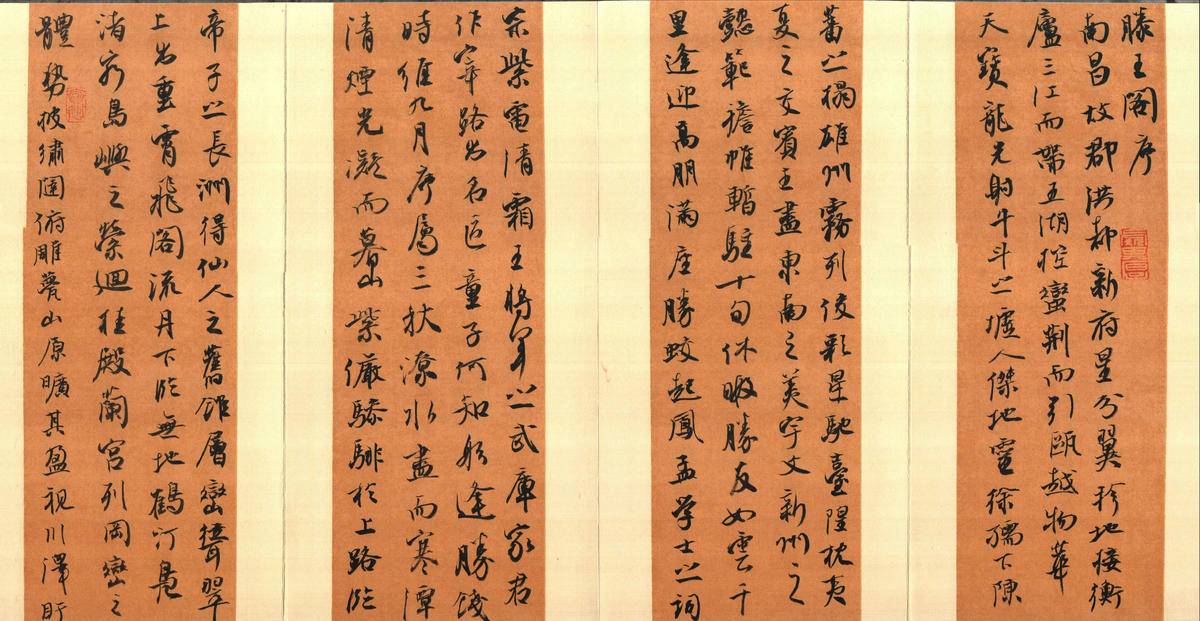 滕王閣序
南昌故郡洪都新府星分翼軫地接衡
廬三江而帶五湖控蠻荊而引甌越物華
天寶龍光射牛斗之墟人傑地靈徐孺下陳
蕃之榻雄州霧列俊彩星馳臺隍枕夷
夏之交賓主盡東南之美宇文新州之
懿範襜帷暫駐十旬休暇勝友如雲千
里逢迎高朋滿座騰蛟起鳳孟學士之詞
宗紫電清霜王將軍之武庫家君
作宰路出名區童子何知躬逢勝餞
時維九月序屬三秋潦水盡而寒潭
清煙光凝而暮山紫儼驂騑於上路臨
帝子之長洲得仙人之舊館層巒聳翠
上出重霄飛閣流丹下臨無地鶴汀鳧
渚窮島嶼之縈迴桂殿蘭宮列岡巒之
體勢披繡闥俯雕甍山原曠其盈視川澤盱